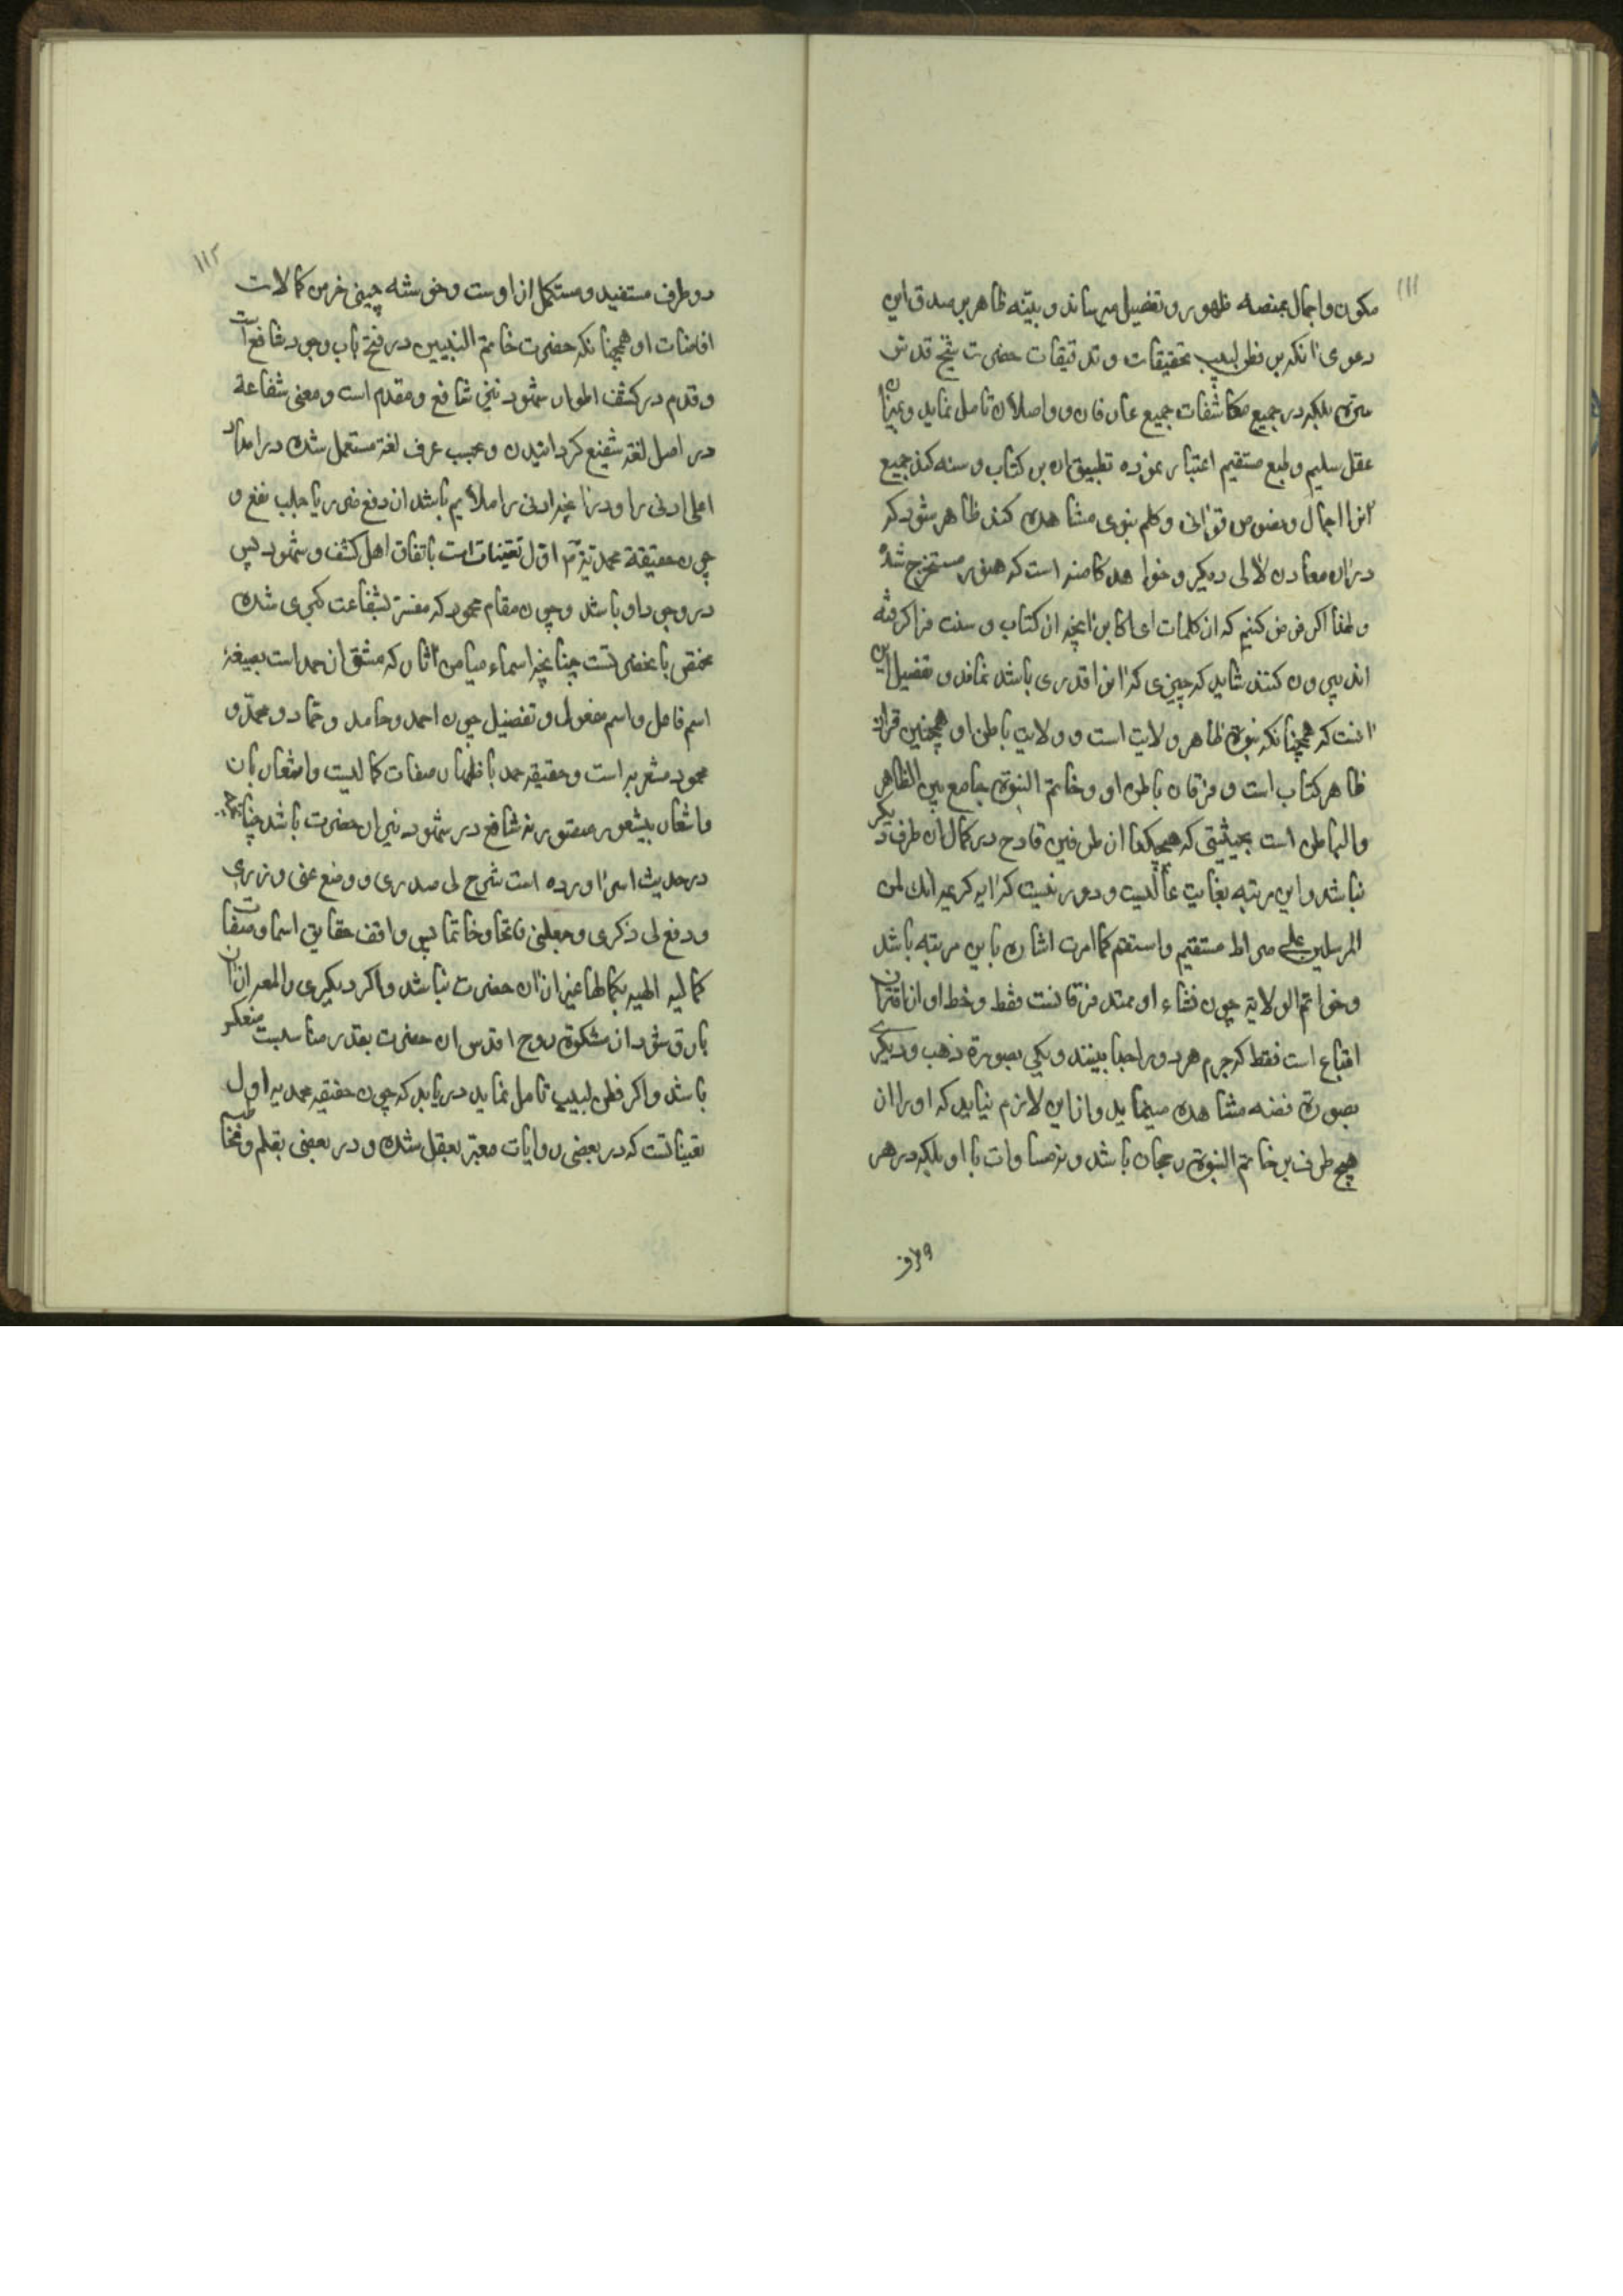 ۱۱۱
مکون و اجمال بمنصه ظهور و تفضیل میرساند و بیّنه ظاهر بر صدق این
دعوی انکه بر فطن لبیب تحقیقات و تدقیقات حضرت شیخ قدس
سره بلکه در جمیع مکاشفات جمیع عارفان و واصلان تامل نماید و بمیزان
عقل سلیم و طبع مستقیم اعتبار نموده تطبیق ان بر کتاب و سنه کند جمیع
انرا اجمال و نصوص قرانی و کلم نبوی مشاهده کند ظاهر شود که
دران معادن لالی دیکر و خواهد کامنه است که هنوز مستخرج نشده
و لهذا اکر فرض کنیم که از کلمات ای اکابر انچه از کتاب و سنت فرا کرفته
اند بیرون کنند شاید که چیزی که انرا قدری باشد نماند و تفضیل این
انست که همچنانکه نبوة ظاهر ولایت است و ولایت باطن او همچنین قران
ظاهر کتاب است و فرقان باطن او و خاتم النبوة جامع بین الظاهر
والباطن است بحیثیتی که هیچیکدا از طرفین قادح در کمال ان طرف دیکر
نباشد و این مرتبه بغایت عالیست و دور نیست که ایه کریمه انک لمن
المرسلین علی صراط مستقیم و استقم کما امرت اشاره باین مرتبه باشد
و خواتم الولایه چون نشاء او ممتد فرقانست فقط و خط او از اقتران
اقباع است فقط که جرم هر دو را جدا بینند و یکی بصورة ذهب و دیکری
بصورة فضه مشاهده مینماید و از این لازم نیاید که او را از
هیچ طرف بر خاتم النبوة رجحان باشد و نه مساوات با او بلکه در هر
۱۱۲
دو طرف مستفید و مستکمل از اوست و خوشه چینی خرمن کمالات
افاضات او همچنانکه حضرت خاتم النبیین در فتح باب وجود شافع است
و قدم در کشف اطوار شهود نیز شافع و مقدم است و معنی شفاعة
در اصل لغة شفیع کردانیدن و بحسب عرف لغة مستعمل شده در امداد
اعلی ادنی را و درانچه ادنی را ملایم باشد از دفع ضرر یا جلب نفع و
چون حقیقة محمدیة اوّل تعیّنات است باتفاق اهل کشف و شهود پس
در وجود او باشد و چون مقام محمود که مفسّر بشفاعت کبری شده
مختص بانحضرتست چنانچه اسماء میامن اثار که مشتق از حمد است بصیغه
اسم فاعل و اسم مفعول و تفضیل چون احمد و حامد و حمّاد و محمّد و
محمود مشعر به است و حقیقه حمد با ظهار صفات کمالیست و اشعار بان
و اشعار بیشعور متصوّر نه شافع در شهود نیز ان حضرت باشد چنانچه
در حدیث اسرا اورده است شرح لی صدری و وضع عنی وزری
و رفع لی ذکری و جعلنی فاتحا و خاتما پس واقف حقایق اسما و صفات
کمالیه الهیه بکمالها غیر از ان حضرت نباشد و اکر دیکری را لمعه از ان
بارق شود از مشکوة روح اقدس ان حضرت بقدر مناسبت منعکس
باشد و اکر فطن لبیب تامل نماید دریابد که چون حقیقه محمدیه اول
تعیناتست که در بعضی روایات معبّر بعقل شده و در بعضی بقلم